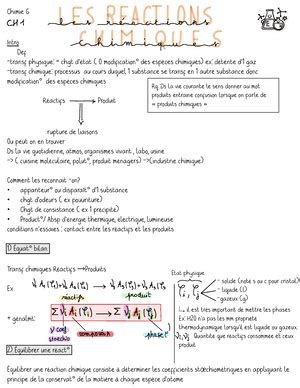 Chimie G
CH 1
LES RÉACTIONS
les réactions
CHIMIQUES
chimiques
Intro
Def
-transf physique: = chgt d'état ( 0 modificat° des espèces chimiques) ex: détente d'1 gaz
-transf chimique: processus au cours duquel 1 substance se transf en 1 autre substance donc
modificat° des espèces chimiques
Rq: Ds la vie courante le sens donner au mot
produits entraine conjusion lorsque on parle de
« produits chimiques »
Réactifs → Produit
rupture de liaisons
Ou peut on en trouver
Ds la vie quotidienne, atmos, organismes vivant, labo, usine
-> ( cuisine moleculaire, polut°, produit menagers) ->(industrie chimique)
Comment les reconnait -on?
• apparition ou disparait° d'1 substance
• chgt d'odeurs ( ex pourriture)
• Chgt de consistance ( ex 1 precipité)
• Product°/ Absp d'energie thermique, electrique, lumineuse
conditions n'essaires : contact entre les réactifs et les produits
1) Equat° bilan
Transf chimiques Réactifs →Produits
Ex
réactifs
produit
= genalmt:
coef
composition
phase
Etat physique
- solide (note s ou c pour cristal)
- liquide (l)
- gazeux (g)
↳ il est très important de mettre les phases
Ex: H2O n'a pas les mm propriété
thermodynamique lorsqu'il est liquide ou gazeux
Quantité que réactifs consommée et ceux
produit
2) Equilibrer une réact°
Equilibrer une réaction chimique consiste à déterminer les coefficients stœchiometriques en appliquant le
principe de la conservat° de la matière à chaque espece d'atome